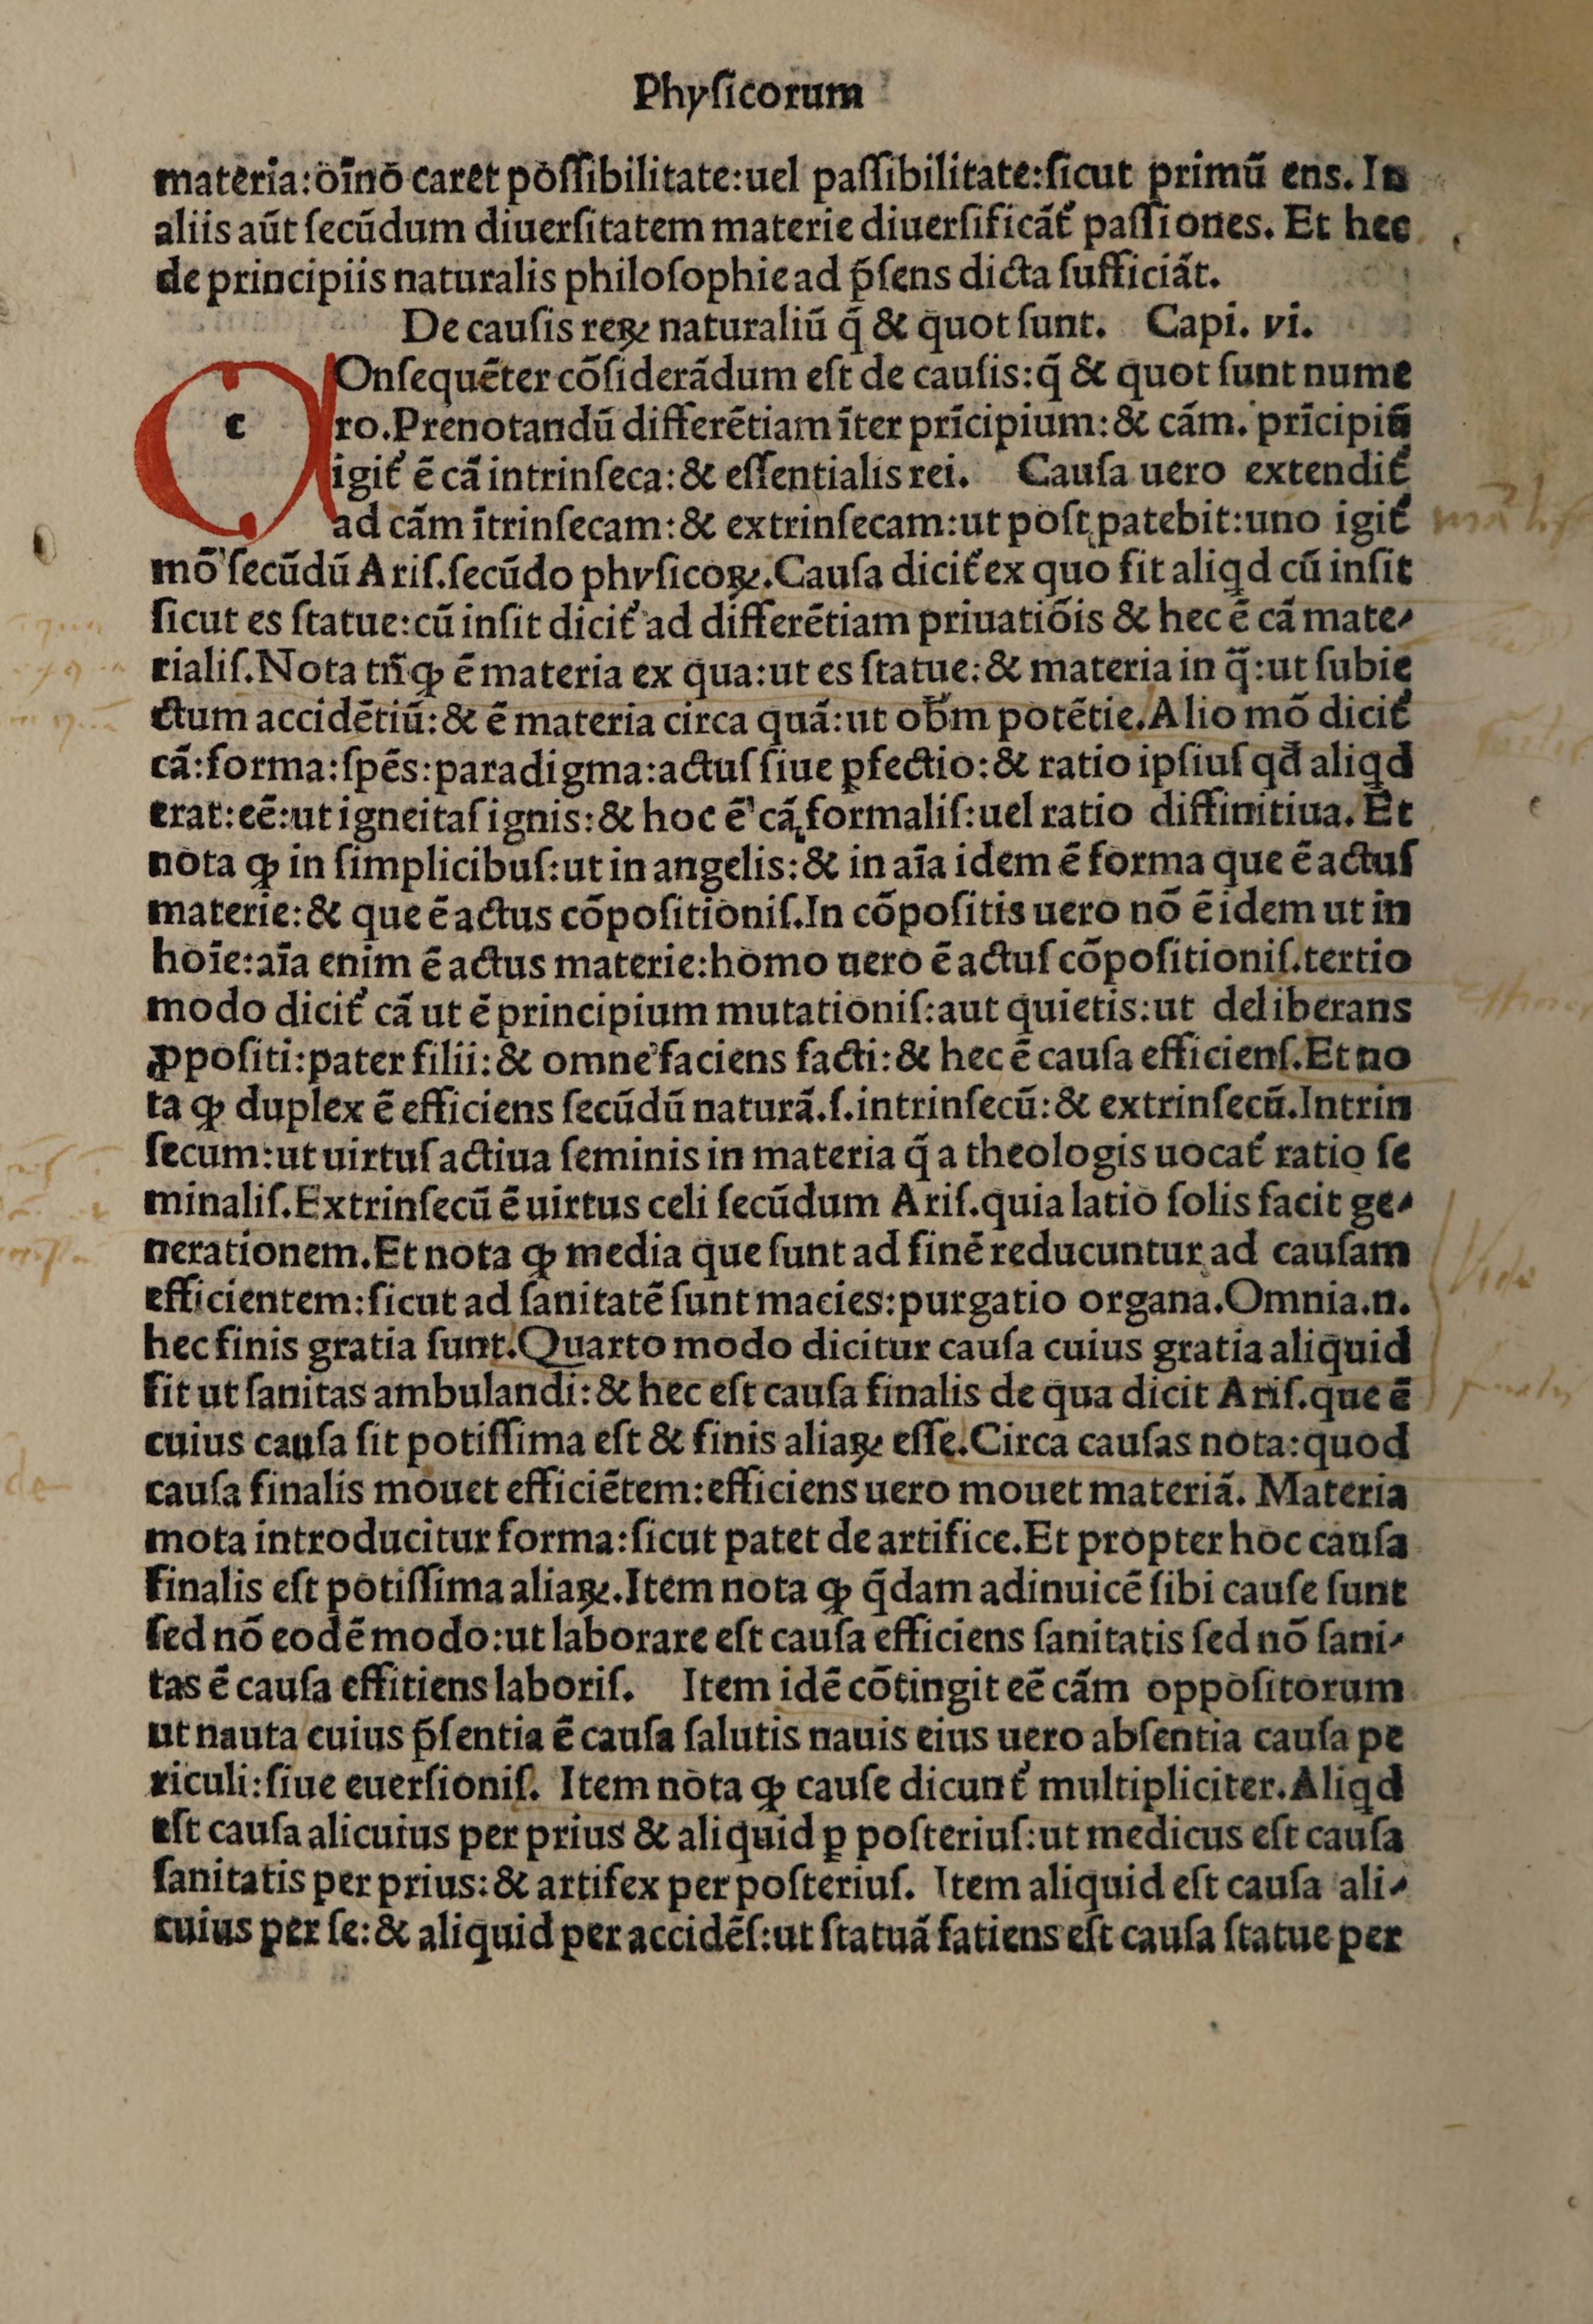 Phyſicorum
materia:oīnō caret poſſibilitate:uel paſſibilitate:ſicut primū ens. In
aliis aūt ſecūdum diuerſitatem materie diuerſificāt᷑ paſſiones. Et hec
de principiis naturalis philoſophie ad p̄ſens dicta ſufficiāt.
De cauſis reꝝ naturaliū q̄ & quot ſunt. Capi. vi.
c
Onſequēter cōſiderādum eſt de cauſis:q̄ & quot ſunt nume
ro.Prenotandū differētiam īter prīcipium:& cām. prīcipiū
igit᷑ ē cā intrinſeca:& eſſentialis rei. Cauſa uero extendit᷑
ad cām ītrinſecam:& extrinſecam:ut poſt patebit:uno igit᷑
mō ſecūdū Ariſ.ſecūdo phyſicoꝝ.Cauſa dicit᷑ ex quo fit aliqd cū inſit
ſicut es ſtatue:cū inſit dicit᷑ ad differētiam priuatiōis & hec ē cā mate-
rialiſ.Nota tn̄ ꝙ ē materia ex qua:ut es ſtatue:& materia in q̄:ut ſubie
ctum accidētiū:& ē materia circa quā:ut ob᷑m potētie.Alio mō dicit᷑
cā:forma:ſpēs:paradigma:actuſ ſiue ꝑfectio:& ratio ipſiuſ qđ aliqd
erat:eē:ut igneitaſ ignis:& hoc ē cā formaliſ:uel ratio diffinitiua. Et
nota ꝙ in ſimplicibuſ:ut in angelis:& in aīa idem ē forma que ē actuſ
materie:& que ē actus cōpoſitioniſ.In cōpoſitis uero nō ē idem ut in
hoīe:aīa enim ē actus materie:homo uero ē actuſ cōpoſitioniſ.tertio
modo dicit᷑ cā ut ē principium mutationiſ:aut quietis:ut deliberans
ꝓpoſiti:pater filii:& omne faciens facti:& hec ē cauſa efficienſ.Et no
ta ꝙ duplex ē efficiens ſecūdū naturā.ſ.intrinſecū:& extrinſecū.Intrin
ſecum:ut uirtuſ actiua ſeminis in materia q̄ a theologis uocat᷑ ratio ſe
minaliſ.Extrinſecū ē uirtus celi ſecūdum Ariſ.quia latio ſolis facit ge-
nerationem.Et nota ꝙ media que ſunt ad finē reducuntur ad cauſam
efficientem:ſicut ad ſanitatē ſunt macies:purgatio organa.Omnia.n.
hec finis gratia ſunt.Quarto modo dicitur cauſa cuius gratia aliquid
fit ut ſanitas ambulandi:& hec eſt cauſa finalis de qua dicit Ariſ.que ē
cuius cauſa ſit potiſſima eſt & finis aliaꝝ eſſe.Circa cauſas nota:quod
cauſa finalis mouet efficiētem:efficiens uero mouet materiā. Materia
mota introducitur forma:ſicut patet de artifice.Et propter hoc cauſa
finalis eſt potiſſima aliaꝝ.Item nota ꝙ q̄dam adinuicē ſibi cauſe ſunt
ſed nō eodē modo:ut laborare eſt cauſa efficiens ſanitatis ſed nō ſani-
tas ē cauſa effitiens laboriſ. Item idē cōtingit eē cām oppoſitorum
ut nauta cuius p̄ſentia ē cauſa ſalutis nauis eius uero abſentia cauſa pe
riculi:ſiue euerſioniſ. Item nota ꝙ cauſe dicunt᷑ multipliciter.Aliqd
eſt cauſa alicuius per prius & aliquid ꝑ poſteriuſ:ut medicus eſt cauſa
ſanitatis per prius:& artifex per poſteriuſ. Item aliquid eſt cauſa ali-
cuius per ſe:& aliquid per accidēſ:ut ſtatuā fatiens eſt cauſa ſtatue per